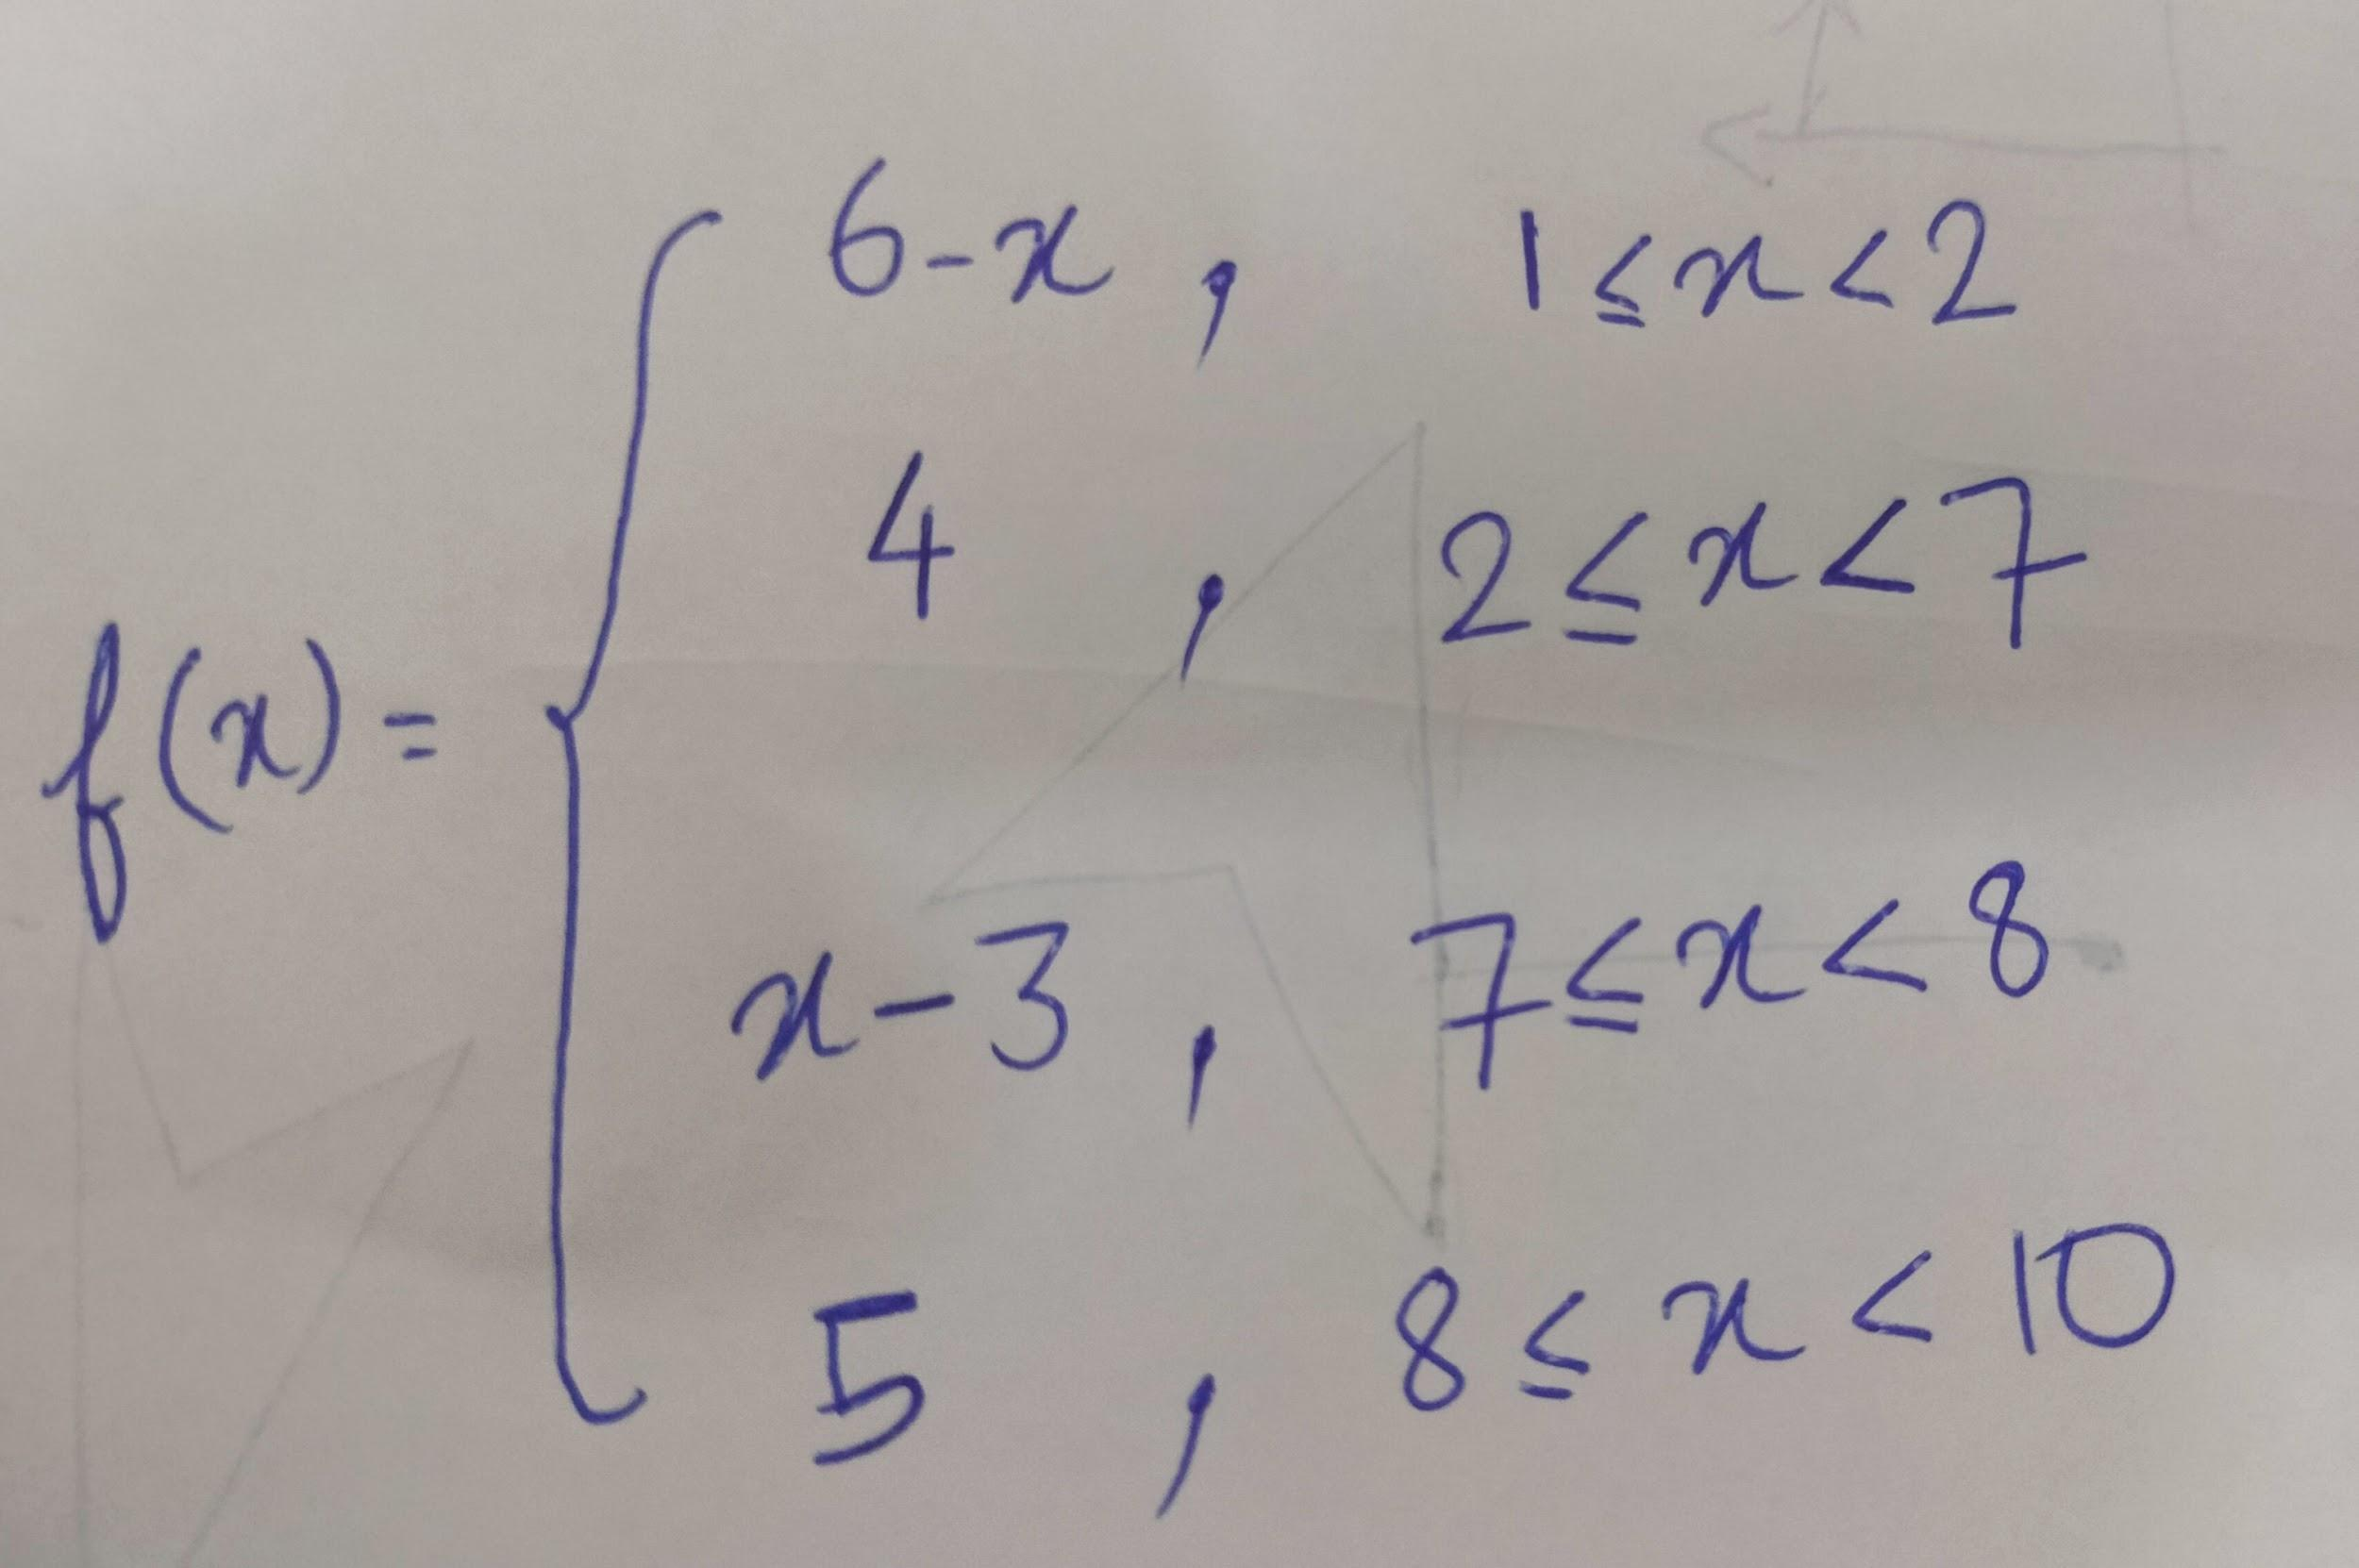 6-x , 1≤x<2
4 , 2≤x<7
f(x)=
x-3 , 7≤x<8
5 , 8≤x<10